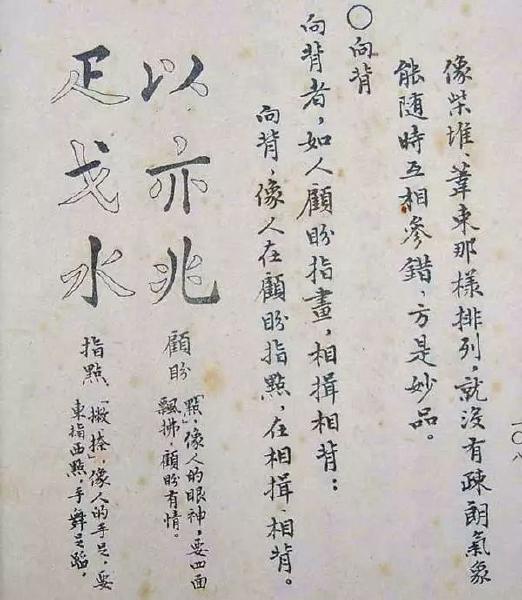 像柴堆、葦束那樣排列，就没有疎朗氣象
能随時互相參錯，方是妙品。
○向背
向背者，如人顧盼指畫，相揖相背：
向背，像人在顧盼指點，在相揖、相背。
以亦兆
顧盼
「點」，像人的眼神，要四面
飄拂，顧盼有情。
足戈水
指點
「撇捺，像人的手足，要
東指西點，手舞足蹈，
一〇八